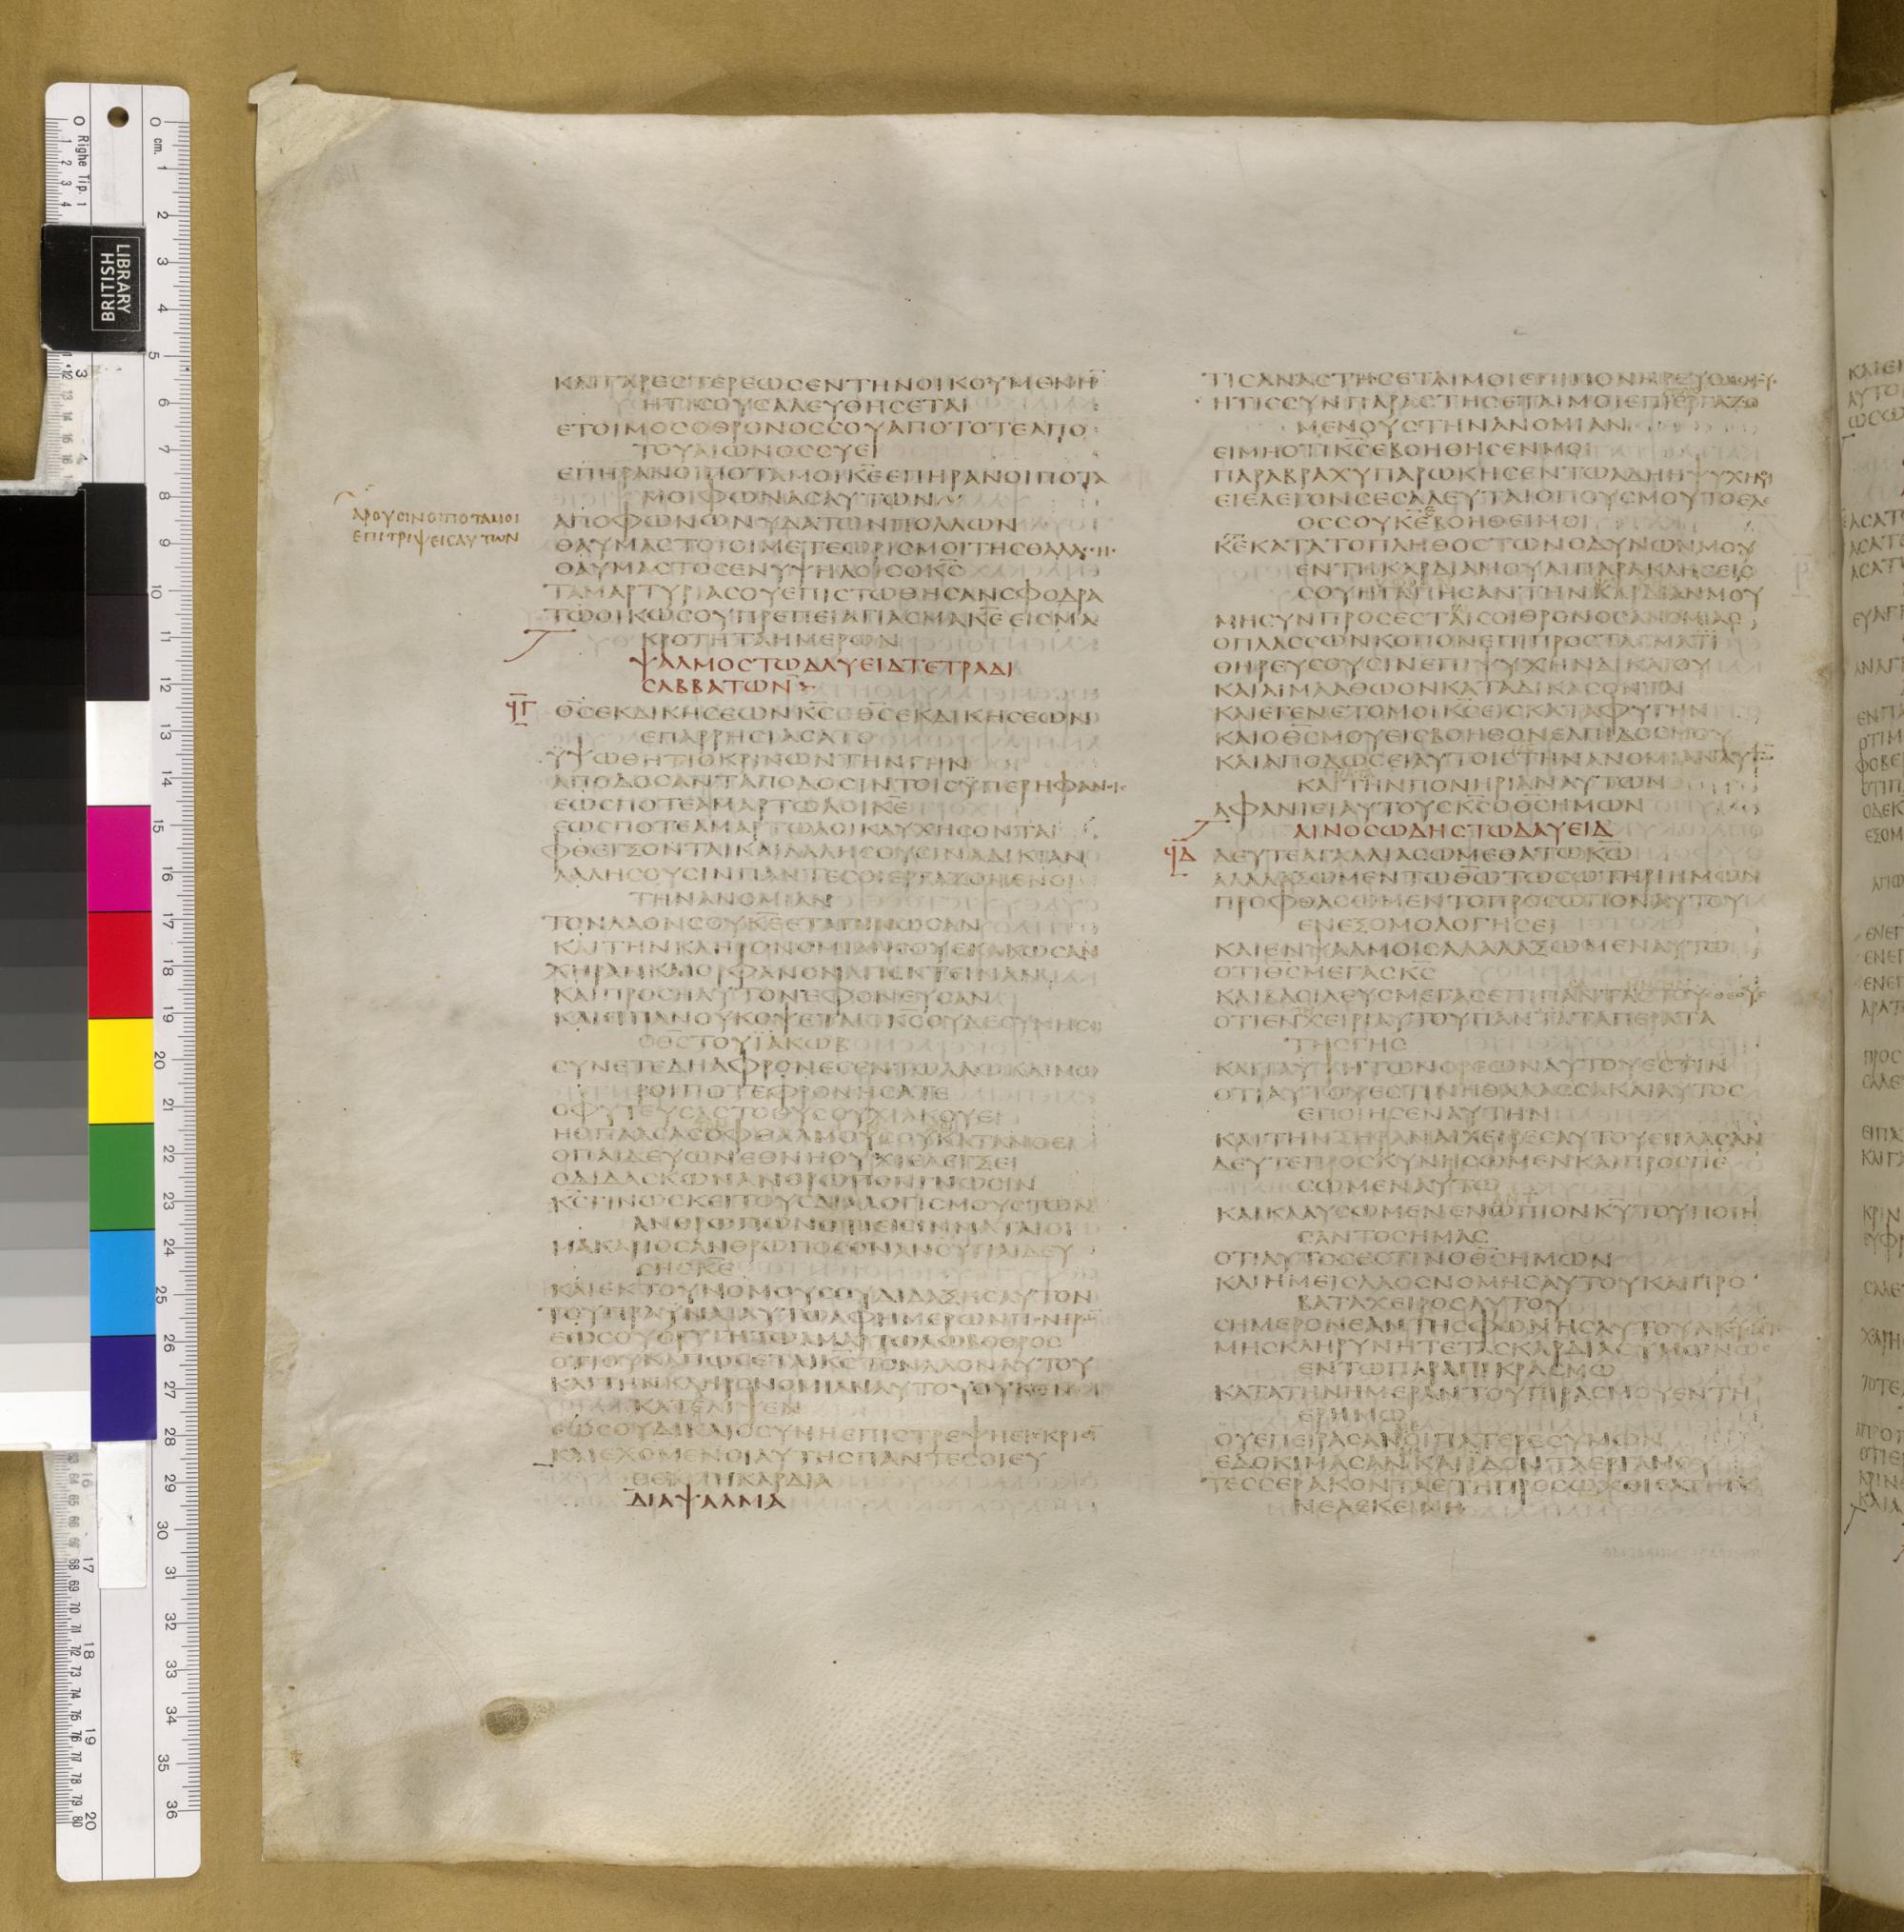 ΑΡΟΥΣΙΝΟΙΠΟΤΑΜΟΙ
ΕΠΙΤΡΙΨΕΙΣΑΥΤΩΝ
ΚΑΙΓΑΡΕΣΤΕΡΕΩΣΕΝΤΗΝΟΙΚΟΥΜΕΝΗ̅
ΗΤΙΣΟΥΣΑΛΕΥΘΗΣΕΤΑΙ
ΕΤΟΙΜΟΣΟΘΡΟΝΟΣΣΟΥΑΠΟΤΟΤΕΑΠΟ
ΤΟΥΑΙΩΝΟΣΣΥΕΙ
ΕΠΗΡΑΝΟΙΠΟΤΑΜΟΙΚ̅Ε̅ΕΠΗΡΑΝΟΙΠΟΤΑ
ΜΟΙΦΩΝΑΣΑΥΤΩΝ
ΑΠΟΦΩΝΩΝΥΔΑΤΩΝΠΟΛΛΩΝ
ΘΑΥΜΑΣΤΟΙΟΙΜΕΤΕΩΡΙΣΜΟΙΤΗΣΘΑΛΑ
ΘΑΥΜΑΣΤΟΣΕΝΥΨΗΛΟΙΣΟΚ̅Σ̅
ΤΑΜΑΡΤΥΡΙΑΣΟΥΕΠΙΣΤΩΘΗΣΑΝΣΦΟΔΡΑ
ΤΩΟΙΚΩΣΟΥΠΡΕΠΕΙΑΓΙΑΣΜΑΚ̅Ε̅ΕΙΣΜΑ
ΚΡΟΤΗΤΑΗΜΕΡΩΝ
ΨΑΛΜΟΣΤΩΔΑΥΕΙΔΤΕΤΡΑΔΙ
ΣΑΒΒΑΤΩΝ
ϤΓ Θ̅Σ̅ΕΚΔΙΚΗΣΕΩΝΚ̅Σ̅Θ̅Σ̅ΕΚΔΙΚΗΣΕΩΝ
ΕΠΑΡΡΗΣΙΑΣΑΤΟ
ΥΨΩΘΗΤΙΟΚΡΙΝΩΝΤΗΝΓΗΝ
ΑΠΟΔΟΣΑΝΤΑΠΟΔΟΣΙΝΤΟΙΣΥΠΕΡΗΦΑΝΙ
ΕΩΣΠΟΤΕΑΜΑΡΤΩΛΟΙΚ̅Ε̅
ΕΩΣΠΟΤΕΑΜΑΡΤΩΛΟΙΚΑΥΧΗΣΟΝΤΑΙ
ΦΘΕΓΞΟΝΤΑΙΚΑΙΛΑΛΗΣΟΥΣΙΝΑΔΙΚΙΑΝ
ΛΑΛΗΣΟΥΣΙΝΠΑΝΤΕΣΟΙΕΡΓΑΖΟΜΕΝΟΙ
ΤΗΝΑΝΟΜΙΑΝ
ΤΟΝΛΑΟΝΣΟΥΚ̅Ε̅ΕΤΑΠΙΝΩΣΑΝ
ΚΑΙΤΗΝΚΛΗΡΟΝΟΜΙΑΝΣΟΥΕΚΑΚΩΣΑΝ
ΧΗΡΑΝΚΑΙΟΡΦΑΝΟΝΑΠΕΚΤΕΙΝΑΝ
ΚΑΙΠΡΟΣΗΛΥΤΟΝΕΦΟΝΕΥΣΑΝ
ΚΑΙΕΙΠΑΝΟΥΚΟΨΕΤΑΙΚ̅Σ̅ΟΥΔΕΣΥΝΗΣΙ
ΟΘ̅Σ̅ΤΟΥΙΑΚΩΒ
ΣΥΝΕΤΕΔΗΑΦΡΟΝΕΣΕΝΤΩΛΑΩΚΑΙΜΩ
ΡΟΙΠΟΤΕΦΡΟΝΗΣΑΤΕ
ΟΦΥΤΕΥΣΑΣΤΟΟΥΣΟΥΧΙΑΚΟΥΕΙ
ΗΟΠΛΑΣΑΣΟΦΘΑΛΜΟΥΣΟΥΚΑΤΑΝΟΕΙ
ΟΠΑΙΔΕΥΩΝΕΘΝΗΟΥΧΙΕΛΕΓΞΕΙ
ΟΔΙΔΑΣΚΩΝΑΝΘΡΩΠΟΝΓΝΩΣΙΝ
Κ̅Σ̅ΓΙΝΩΣΚΕΙΤΟΥΣΔΙΑΛΟΓΙΣΜΟΥΣΤΩΝ
ΑΝΘΡΩΠΩΝΟΤΙΕΙΣΙΝΜΑΤΑΙΟΙ
ΜΑΚΑΡΙΟΣΑΝΘΡΩΠΟΣΟΝΑΝΣΥΠΑΙΔΕΥ
ΣΗΣΚ̅Ε̅
ΚΑΙΕΚΤΟΥΝΟΜΟΥΣΟΥΔΙΔΑΞΗΣΑΥΤΟΝ
ΤΟΥΠΡΑΥΝΑΙΑΥΤΩΑΦΗΜΕΡΩΝΠΟΝΗΡ
ΕΩΣΟΥΟΡΥΓΗΤΩΑΜΑΡΤΩΛΩΒΟΘΡΟΣ
ΟΤΙΟΥΚΑΠΩΣΕΤΑΙΚ̅Σ̅ΤΟΝΛΑΟΝΑΥΤΟΥ
ΚΑΙΤΗΝΚΛΗΡΟΝΟΜΙΑΝΑΥΤΟΥΟΥΚΕΝ
ΚΑΤΑΛΙΨΕΝ
ΕΩΣΟΥΔΙΚΑΙΟΣΥΝΗΕΠΙΣΤΡΕΨΗΕΙΣΚΡΙΣΙ
ΚΑΙΕΧΟΜΕΝΟΙΑΥΤΗΣΠΑΝΤΕΣΟΙΕΥ
ΘΕΙΣΤΗΚΑΡΔΙΑ
ΔΙΑΨΑΛΜΑ
ΤΙΣΑΝΑΣΤΗΣΕΤΑΙΜΟΙΕΠΙΠΟΝΗΡΕΥΟΜΕΝΟΥΣ
ΗΤΙΣΣΥΝΠΑΡΑΣΤΗΣΕΤΑΙΜΟΙΕΠΙΕΡΓΑΖΟ
ΜΕΝΟΥΣΤΗΝΑΝΟΜΙΑΝ
ΕΙΜΗΟΤΙΚ̅Σ̅ΕΒΟΗΘΗΣΕΝΜΟΙ
ΠΑΡΑΒΡΑΧΥΠΑΡΩΚΗΣΕΝΤΩΑΔΗΗΨΥΧΗ
ΕΙΕΛΕΓΟΝΣΕΣΑΛΕΥΤΑΙΟΠΟΥΣΜΟΥΤΟΕΛΕ
ΟΣΣΟΥΚ̅Ε̅ΒΟΗΘΕΙΜΟΙ
Κ̅Ε̅ΚΑΤΑΤΟΠΛΗΘΟΣΤΩΝΟΔΥΝΩΝΜΟΥ
ΕΝΤΗΚΑΡΔΙΑΜΟΥΑΙΠΑΡΑΚΛΗΣΕΙΣ
ΣΟΥΗΓΑΠΗΣΑΝΤΗΝΚΑΡΔΙΑΝΜΟΥ
ΜΗΣΥΝΠΡΟΣΕΣΤΑΙΣΟΙΘΡΟΝΟΣΑΝΟΜΙΑΣ
ΟΠΛΑΣΣΩΝΚΟΠΟΝΕΠΙΠΡΟΣΤΑΓΜΑΤΙ
ΘΗΡΕΥΣΟΥΣΙΝΕΠΙΨΥΧΗΝΔΙΚΑΙΟΥ
ΚΑΙΑΙΜΑΑΘΩΟΝΚΑΤΑΔΙΚΑΣΟΝΤΑΙ
ΚΑΙΕΓΕΝΕΤΟΜΟΙΚ̅Σ̅ΕΙΣΚΑΤΑΦΥΓΗΝ
ΚΑΙΟΘ̅Σ̅ΜΟΥΕΙΣΒΟΗΘΟΝΕΛΠΙΔΟΣΜΟΥ
ΚΑΙΑΠΟΔΩΣΕΙΑΥΤΟΙΣΤΗΝΑΝΟΜΙΑΝΑΥΤ
ΚΑΙΤΗΝΠΟΝΗΡΙΑΝΑΥΤΩΝ
ΑΦΑΝΙΕΙΑΥΤΟΥΣΚ̅Σ̅ΟΘ̅Σ̅ΗΜΩΝ
ΑΙΝΟΣΩΔΗΣΤΩΔΑΥΕΙΔ
ϤΔ ΔΕΥΤΕΑΓΑΛΛΙΑΣΩΜΕΘΑΤΩΚ̅Ω̅
ΑΛΑΛΑΞΩΜΕΝΤΩΘ̅Ω̅ΤΩΣΩΤΗΡΙΗΜΩΝ
ΠΡΟΦΘΑΣΩΜΕΝΤΟΠΡΟΣΩΠΟΝΑΥΤΟΥ
ΕΝΕΞΟΜΟΛΟΓΗΣΕΙ
ΚΑΙΕΝΨΑΛΜΟΙΣΑΛΑΛΑΞΩΜΕΝΑΥΤΩ
ΟΤΙΘ̅Σ̅ΜΕΓΑΣΚ̅Σ̅
ΚΑΙΒΑΣΙΛΕΥΣΜΕΓΑΣΕΠΙΠΑΝΤΑΣΤΟΥΣΘΕΟΥΣ
ΟΤΙΕΝΧΕΙΡΙΑΥΤΟΥΠΑΝΤΑΤΑΠΕΡΑΤΑ
ΤΗΣΓΗΣ
ΚΑΙΤΑΥΨΗΤΩΝΟΡΕΩΝΑΥΤΟΥΕΣΤΙΝ
ΟΤΙΑΥΤΟΥΕΣΤΙΝΗΘΑΛΑΣΣΑΚΑΙΑΥΤΟΣ
ΕΠΟΙΗΣΕΝΑΥΤΗΝ
ΚΑΙΤΗΝΞΗΡΑΝΑΙΧΕΙΡΕΣΑΥΤΟΥΕΠΛΑΣΑΝ
ΔΕΥΤΕΠΡΟΣΚΥΝΗΣΩΜΕΝΚΑΙΠΡΟΣΠΕ
ΣΩΜΕΝΑΥΤΩ
ΚΑΙΚΛΑΥΣΩΜΕΝΕΝΩΠΙΟΝΚ̅Υ̅ΤΟΥΠΟΙΗ
ΣΑΝΤΟΣΗΜΑΣ
ΟΤΙΑΥΤΟΣΕΣΤΙΝΟΘ̅Σ̅ΗΜΩΝ
ΚΑΙΗΜΕΙΣΛΑΟΣΝΟΜΗΣΑΥΤΟΥΚΑΙΠΡΟ
ΒΑΤΑΧΕΙΡΟΣΑΥΤΟΥ
ΣΗΜΕΡΟΝΕΑΝΤΗΣΦΩΝΗΣΑΥΤΟΥΑΚΟΥΣΗΤΕ
ΜΗΣΚΛΗΡΥΝΗΤΕΤΑΣΚΑΡΔΙΑΣΥΜΩΝΩΣ
ΕΝΤΩΠΑΡΑΠΙΚΡΑΣΜΩ
ΚΑΤΑΤΗΝΗΜΕΡΑΝΤΟΥΠΙΡΑΣΜΟΥΕΝΤΗ
ΕΡΗΜΩ
ΟΥΕΠΕΙΡΑΣΑΝΟΙΠΑΤΕΡΕΣΥΜΩΝ
ΕΔΟΚΙΜΑΣΑΝΚΑΙΙΔΟΝΤΑΕΡΓΑΜΟΥ
ΤΕΣΣΕΡΑΚΟΝΤΑΕΤΗΠΡΟΣΩΧΘΙΣΑΤΗΓΕ
ΝΕΑΕΚΕΙΝΗ
LIBRARY
BRITISH